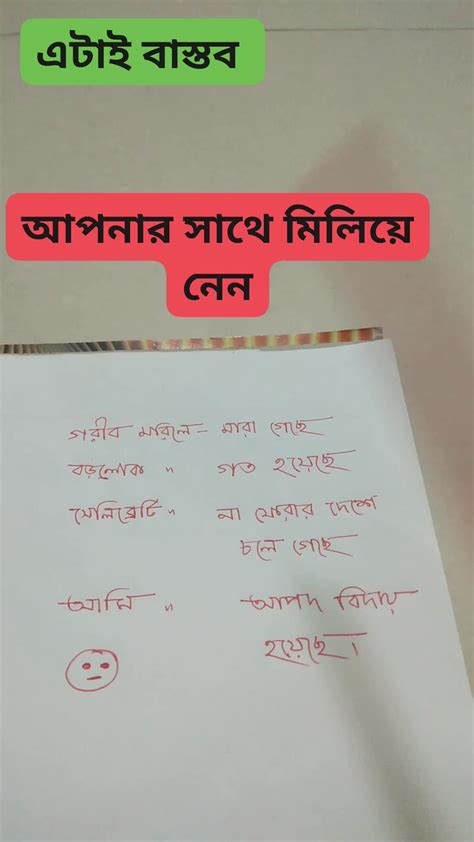 এটাই বাস্তব
আপনার সাথে মিলিয়ে
নেন
গরীব মরিলে - মারা গেছে
বড়লোক " গত হয়েছে
সেলিব্রেটি " না ফেরার দেশে
চলে গেছে
আমি " আপদ বিদায়
হয়েছে।